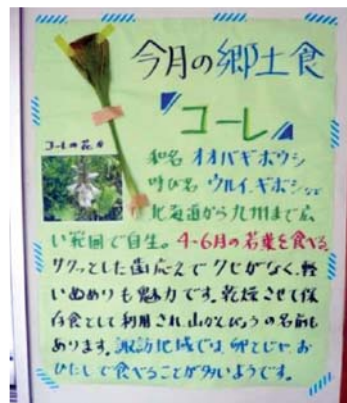 今月の郷土食
『コーレ』
コーレの花
和名 オオバギボウシ
呼び名 ウルイ、ギボシなど
北海道から九州まで広
い範囲で自生。4~6月の若葉を食べる。
サクっとした歯応えでクじがなく、軽
いぬめりも魅力です。乾燥させて保
存食として利用され、山かんぴょうの名前も
あります。諏訪地域では、卵とじや、お
ひたしで食べることが多いようです。